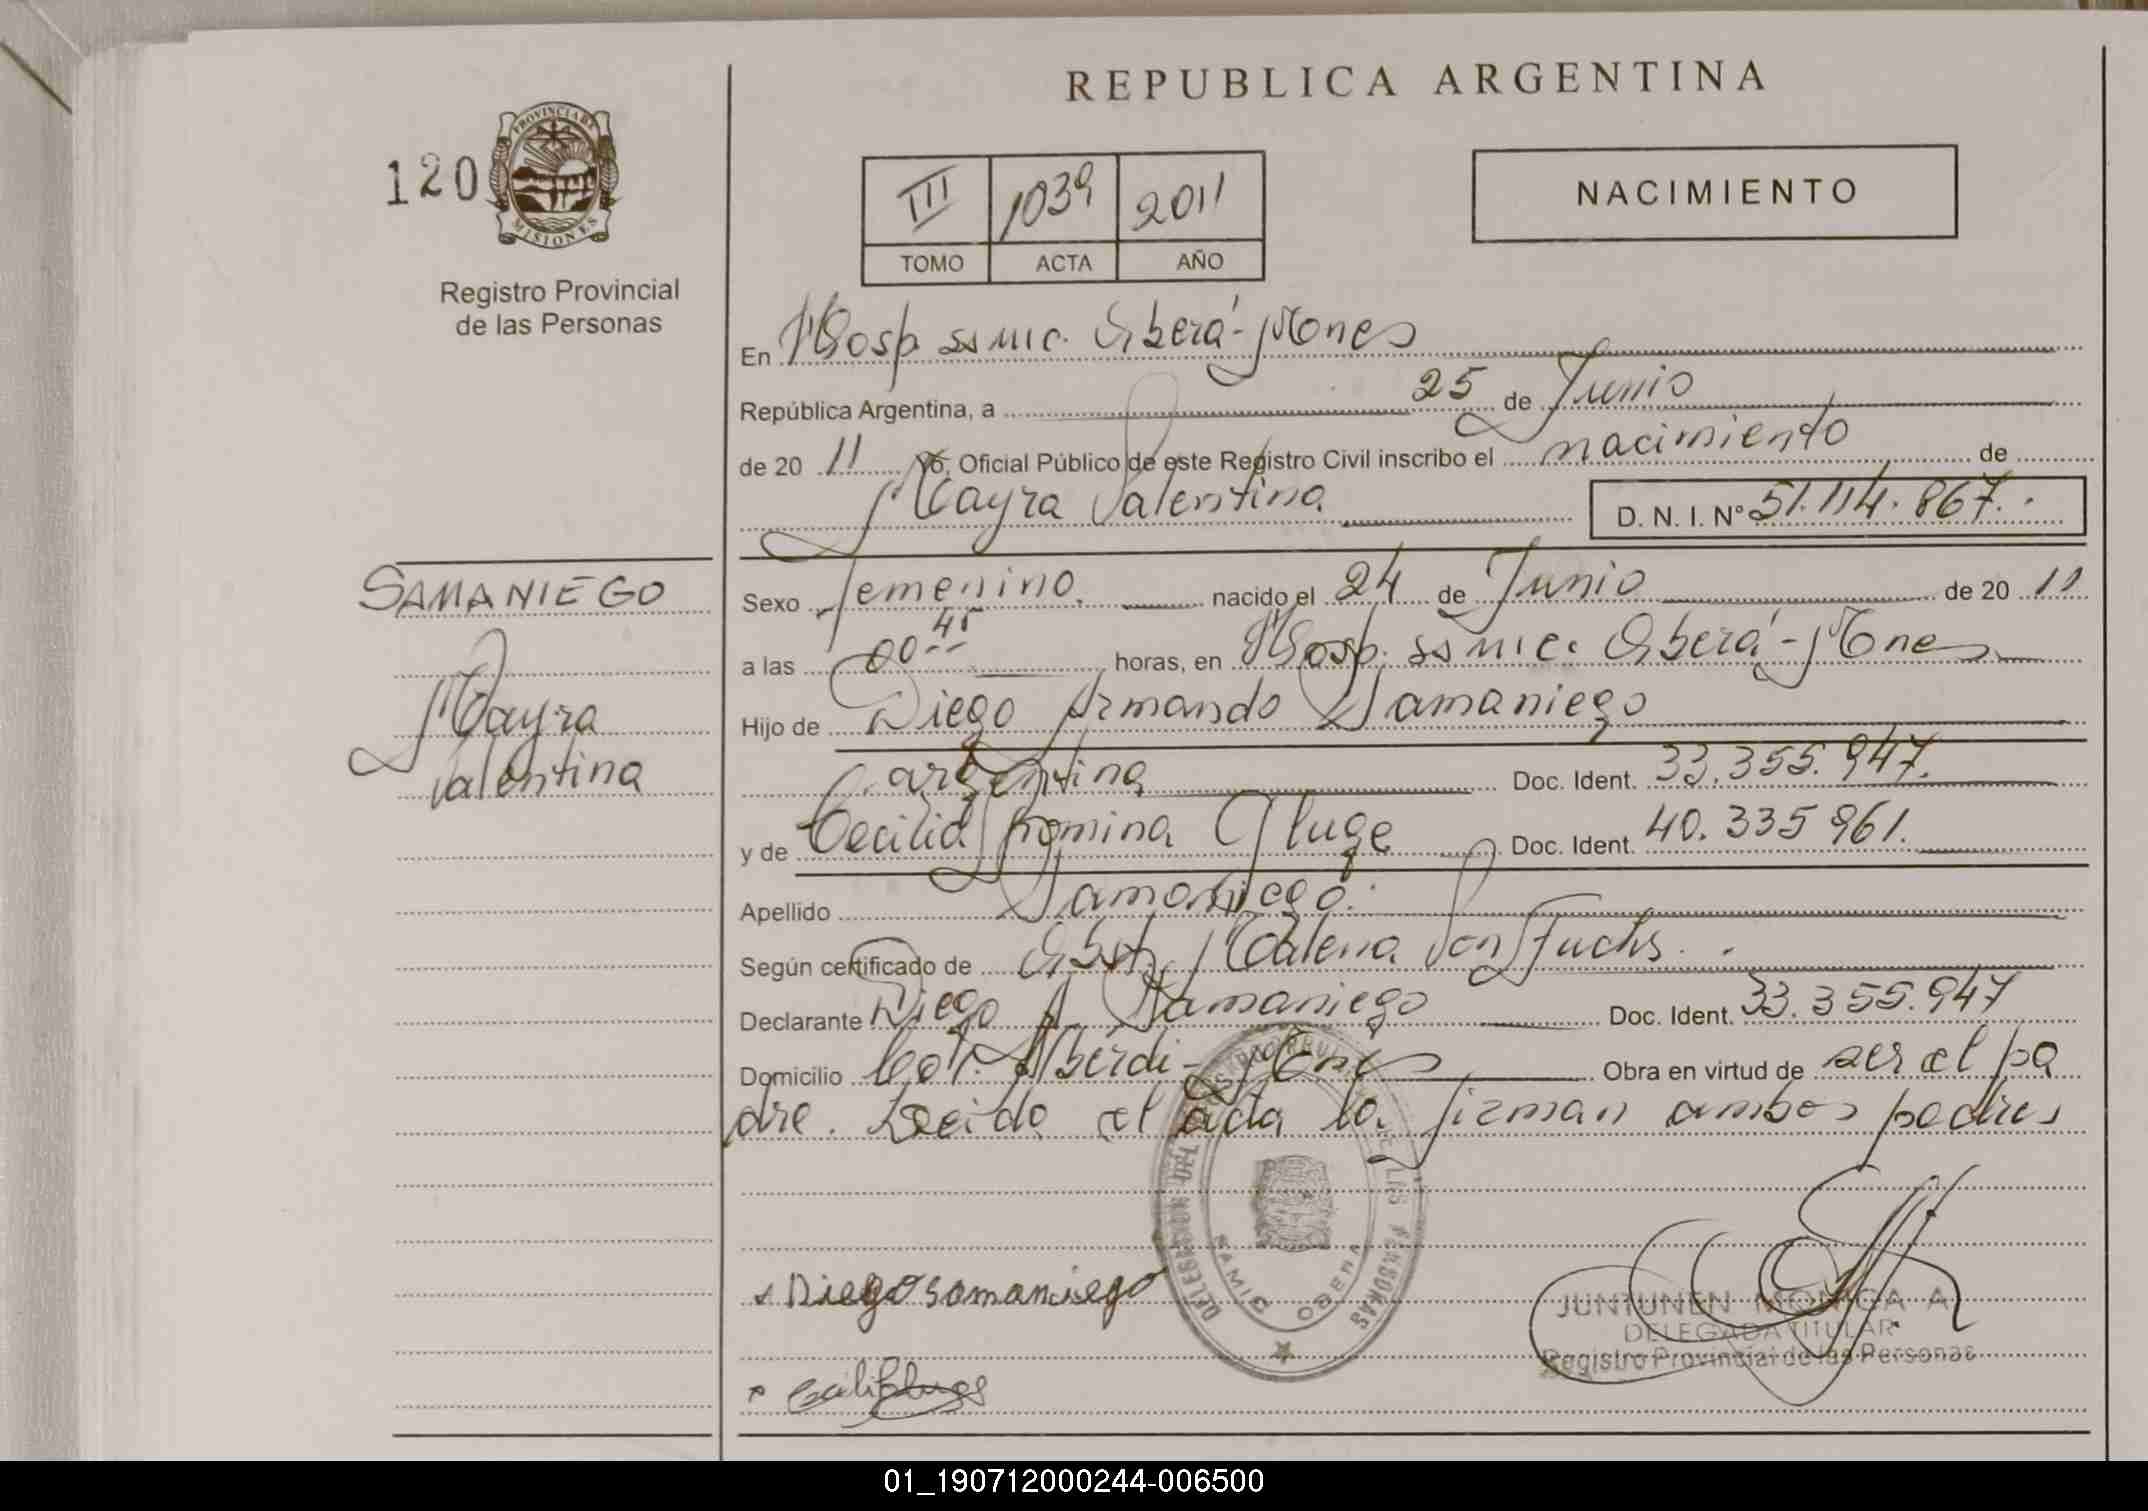 REPUBLICA ARGENTINA
120
PROVINCIA DE
MISIONES
Registro Provincial
de las Personas
III 1039 2011
TOMO ACTA AÑO
NACIMIENTO
En Hosp. ss mic. Oberá - Mones
República Argentina, a 25 de Junio
de 20 11 Yo, Oficial Público de este Registro Civil inscribo el nacimiento de
Mayra Valentina D. N. I. N° 51.114.867.
SAMANIEGO
Mayra
Valentina
Sexo femenino. nacido el 24 de Junio de 20 11
a las 00 45 horas, en Hosp. ss mic. Oberá - Mones
Hijo de Diego Armando Samaniego
argentina Doc. Ident. 33.355.947.
y de Cecilia Romina Gluge Doc. Ident. 40.335 961.
Apellido Samaniego.
Según certificado de Obst. Malena Von Fuchs.
Declarante Diego A. Samaniego Doc. Ident. 33.355.947
Domicilio Col. Alberdi - Mones Obra en virtud de ser el pa
dre. Leida el acta la firman ambos padres
DELEGACION DEL REGISTRO PROVINCIAL DE LAS PERSONAS
SAMIC OBERA
Diego samaniego
JUNTUNEN MONICA A
DELEGADA TITULAR
Registro Provincial de las Personas
01_190712000244-006500